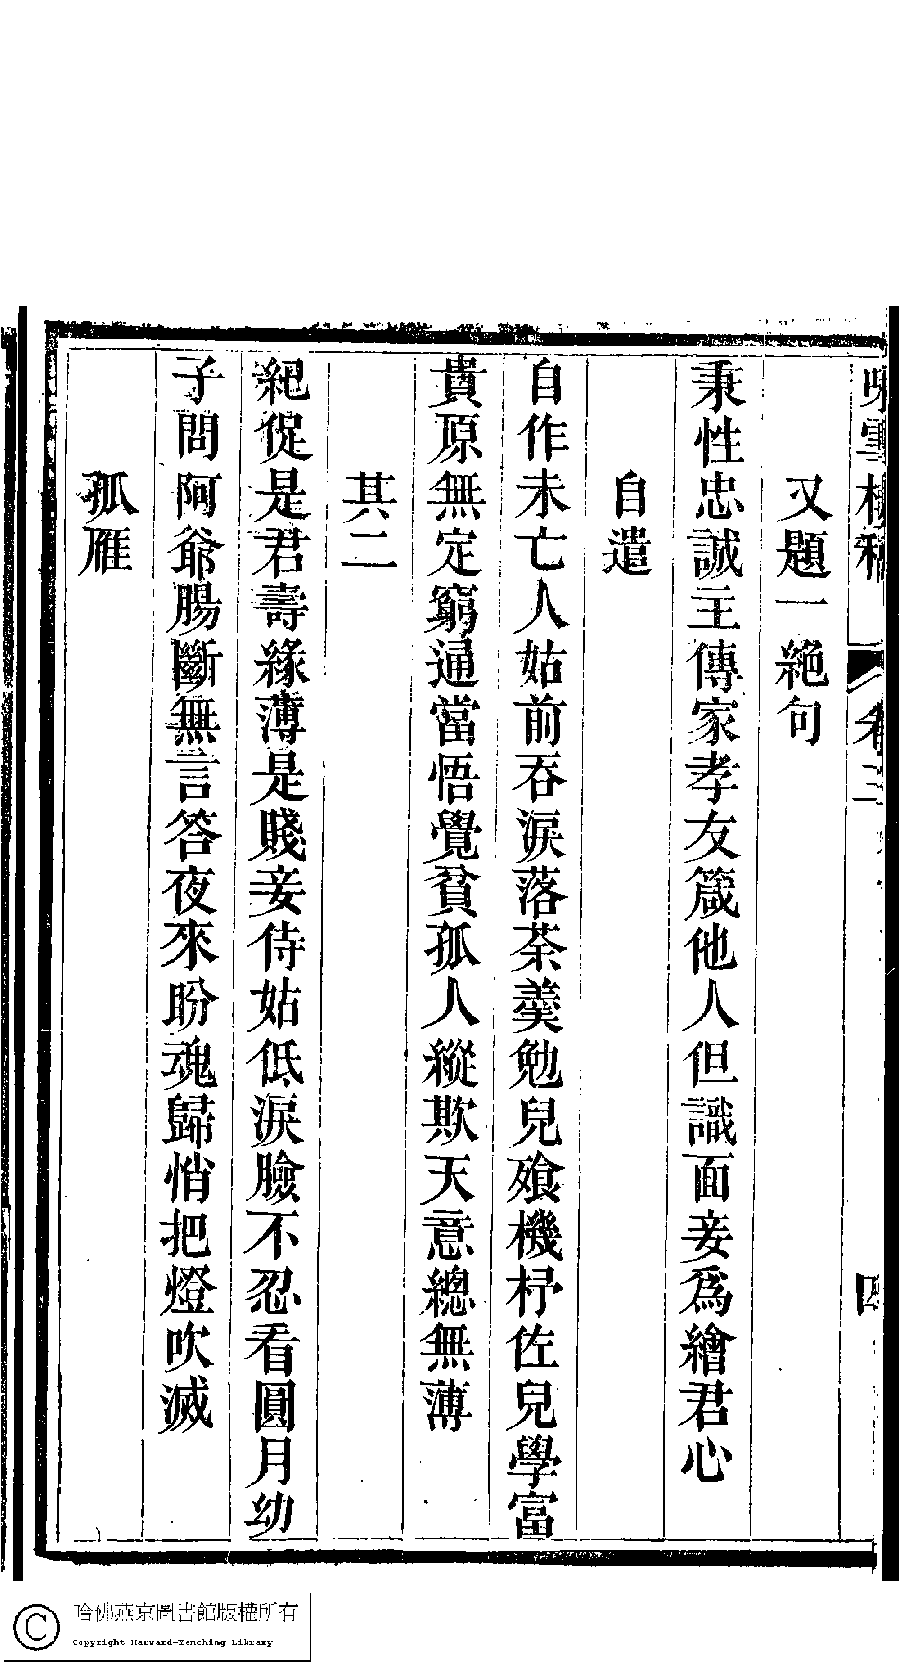 又題一絕句
秉性忠誠主傳家孝友箴他人但識面妾爲繪君心
自遣
自作未亡人姑前吞淚落荼羹勉兒飧機杼佐兒學富
貴原無定窮通當悟覺貧孤人縱欺天意總無薄
其二
紀促是君壽緣薄是賤妾侍姑低淚臉不忍看圓月幼
子問阿爺腸斷無言答夜來盼魂歸悄把燈吹滅
孤雁
哈佛燕京圖書館版權所有
Copyright Harvard-Yenching Library